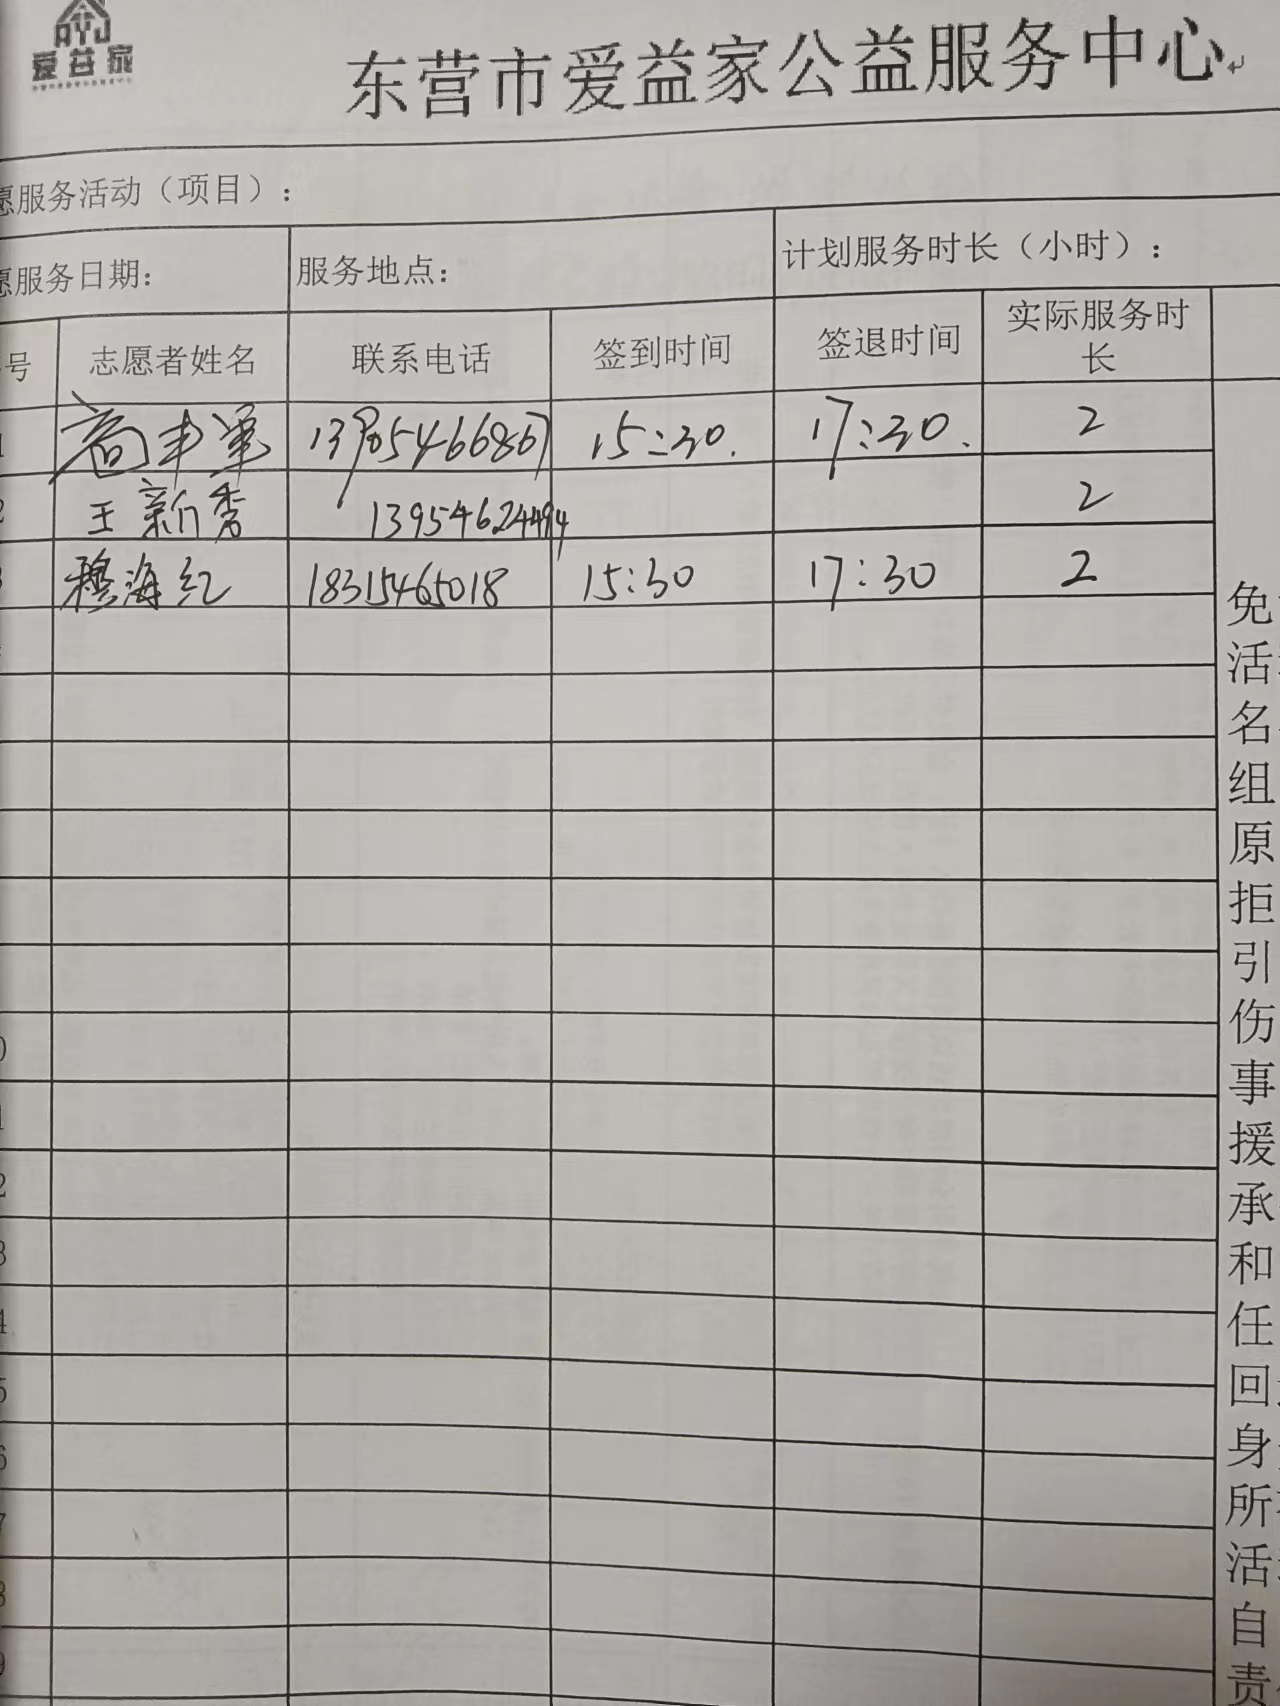 爱益家
东营市爱益家公益服务中心
愿服务活动（项目）：
愿服务日期： 服务地点： 计划服务时长（小时）：
号 志愿者姓名 联系电话 签到时间 签退时间 实际服务时长
15:30. 17:30. 2
2 王新秀 13954624494 2
3 穆海红 18315465018 15:30 17:30 2
免
活
名
组
原
拒
引
伤
事
援
承
和
任
回
身
所
活
自
责